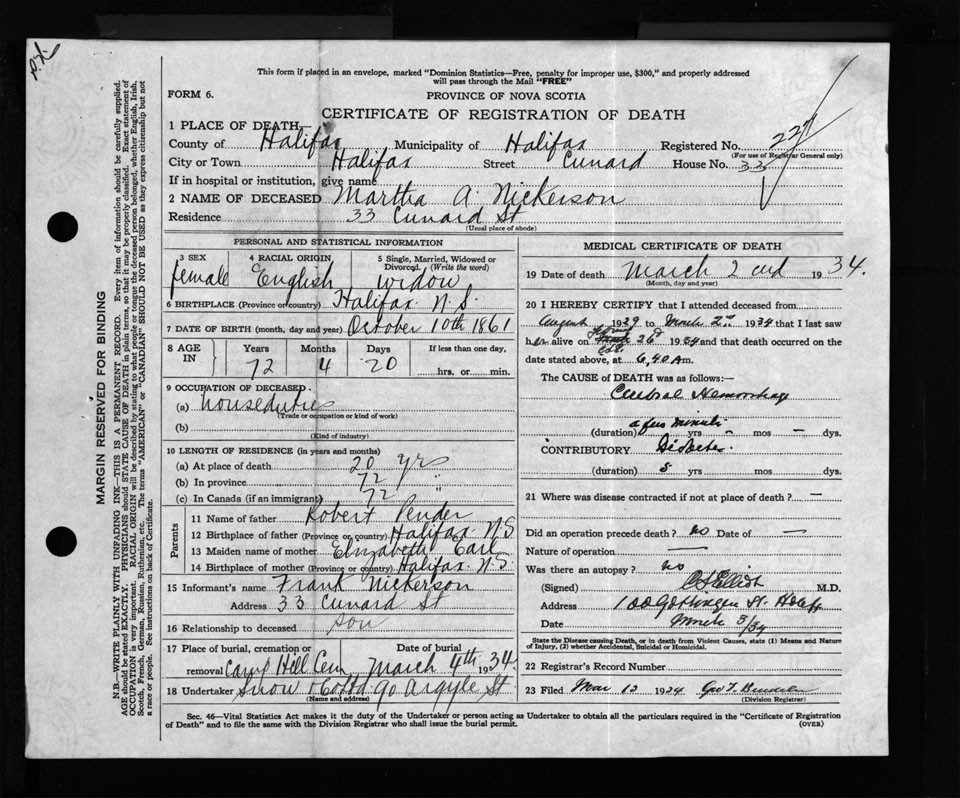 This form if placed in an envelope, marked "Dominion Statistics—Free, penalty for improper use, $300," and properly addressed
will pass through the Mail "FREE"
FORM 6.
PROVINCE OF NOVA SCOTIA
CERTIFICATE OF REGISTRATION OF DEATH
1 PLACE OF DEATH—
County of Halifax Municipality of Halifax Registered No. 227
(For use of Registrar General only)
City or Town Halifax Street Cunard House No. 33
If in hospital or institution, give name
2 NAME OF DECEASED Martha A. Nickerson
Residence 33 Cunard St
(Usual place of abode)
PERSONAL AND STATISTICAL INFORMATION
3 SEX 4 RACIAL ORIGIN 5 Single, Married, Widowed or Divorced. (Write the word)
female English widow
6 BIRTHPLACE (Province or country) Halifax N.S.
7 DATE OF BIRTH (month, day and year) October 10th 1861
8 AGE IN Years Months Days If less than one day,
72 4 20 hrs. or min.
9 OCCUPATION OF DECEASED
(a) houseduties
(Trade or occupation or kind of work)
(b)
(Kind of industry)
10 LENGTH OF RESIDENCE (in years and months)
(a) At place of death 20 yrs
(b) In province 72 "
(c) In Canada (if an immigrant) 72 "
Parents
11 Name of father Robert Pender
12 Birthplace of father (Province or country) Halifax N.S
13 Maiden name of mother Elizabeth Earl
14 Birthplace of mother (Province or country) Halifax N.S
15 Informant's name Frank Nickerson
Address 33 Cunard St
16 Relationship to deceased son
17 Place of burial, cremation or removal Date of burial
Camp Hill Cem March 4th 1934.
18 Undertaker Snow & Co Ltd 90 Argyle St
(Name and address)
MEDICAL CERTIFICATE OF DEATH
19 Date of death March 2nd 1934.
(Month, day and year)
20 I HEREBY CERTIFY that I attended deceased from
August 1929 to March 2nd 1934 that I last saw
her alive on 26 1934 and that death occurred on the
date stated above, at 6,40 Am.
The CAUSE of DEATH was as follows:—
Cerebral Hemorrhage
a few minutes
(duration) yrs – mos – dys.
CONTRIBUTORY Diabetes
(duration) 5 yrs mos dys.
21 Where was disease contracted if not at place of death? —
Did an operation precede death? no Date of —
Nature of operation —
Was there an autopsy? no
(Signed) Elliott M.D.
Address 100 Gottingen St. Halifax
Date March 3/34
State the Disease causing Death, or in death from Violent Causes, state (1) Means and Nature
of Injury, (2) whether Accidental, Suicidal or Homicidal.
22 Registrar's Record Number
23 Filed Mar 13 1934 Geo T.
(Division Registrar)
Sec. 46—Vital Statistics Act makes it the duty of the Undertaker or person acting as Undertaker to obtain all the particulars required in the "Certificate of Registration
of Death" and to file the same with the Division Registrar who shall issue the burial permit. (OVER)
MARGIN RESERVED FOR BINDING
N.B.—WRITE PLAINLY WITH UNFADING INK—THIS IS A PERMANENT RECORD. Every item of information should be carefully supplied.
AGE should be stated EXACTLY. PHYSICIANS should STATE CAUSE OF DEATH in plain terms, so that it may be properly classified. Exact statement of
OCCUPATION is very important. RACIAL ORIGIN will be described by stating to what people or tongue the deceased person belonged, whether English, Irish,
Scotch, French, German, Russian, Ruthenian, etc. The terms "AMERICAN" or "CANADIAN" SHOULD NOT BE USED as they express citizenship but not
a race or people. See instructions on back of Certificate.